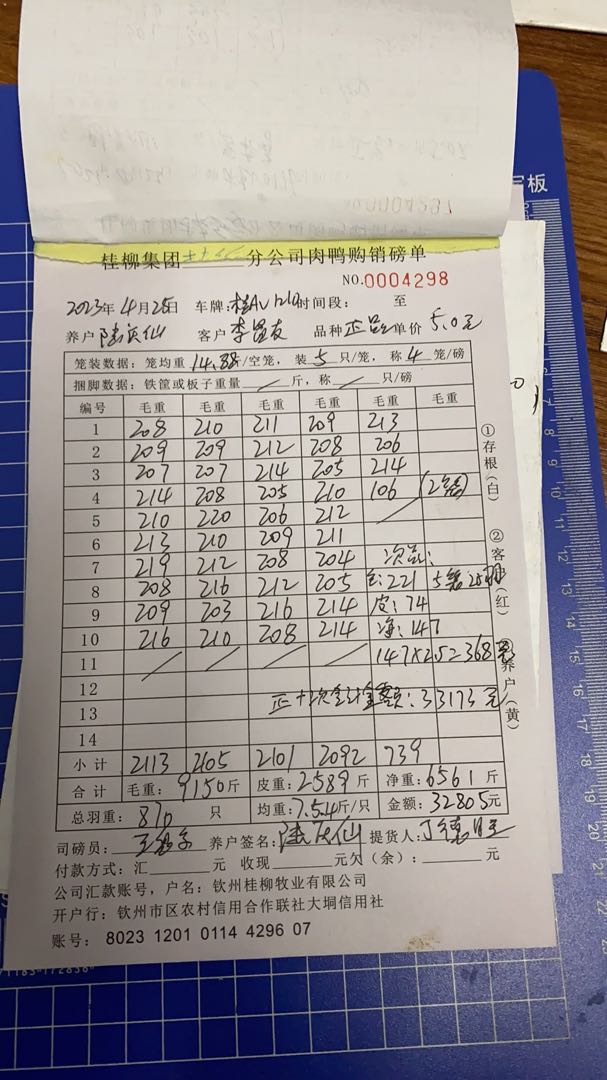 桂柳集团 分公司肉鸭购销磅单
NO.0004298
2023年4月25日 车牌: 时间段: 至
养户 客户 品种 正品 单价 5.0元
笼装数据: 笼均重 14.88斤/空笼, 装 5 只/笼, 称 4 笼/磅
捆脚数据: 铁筐或板子重量 / 斤, 称 / 只/磅
编号 毛重 毛重 毛重 毛重 毛重 毛重
1 208 210 211 209 213
2 209 209 212 208 206
3 207 207 214 205 214
4 214 208 205 210 106 (2笼)
5 210 220 206 212 /
6 213 210 209 211
7 219 212 208 204 次品:
8 208 216 212 205 毛:221 5笼25羽
9 209 203 216 214 皮:74
10 216 210 208 214 净:147
11 / / / / 147×2.5=368元
12
13 正+次合计金额:33173元
14
小计 2113 2105 2101 2092 739
合计 毛重:9150斤 皮重:2589斤 净重:6561斤
总羽重: 870 只 均重:7.54斤/只 金额:32805元
司磅员: 养户签名: 提货人:
付款方式: 汇 元 收现 元欠(余): 元
公司汇款账号, 户名: 钦州桂柳牧业有限公司
开户行: 钦州市区农村信用合作联社大垌信用社
账号: 8023 1201 0114 4296 07
①存根(白)
②客户(红)
③养户(黄)